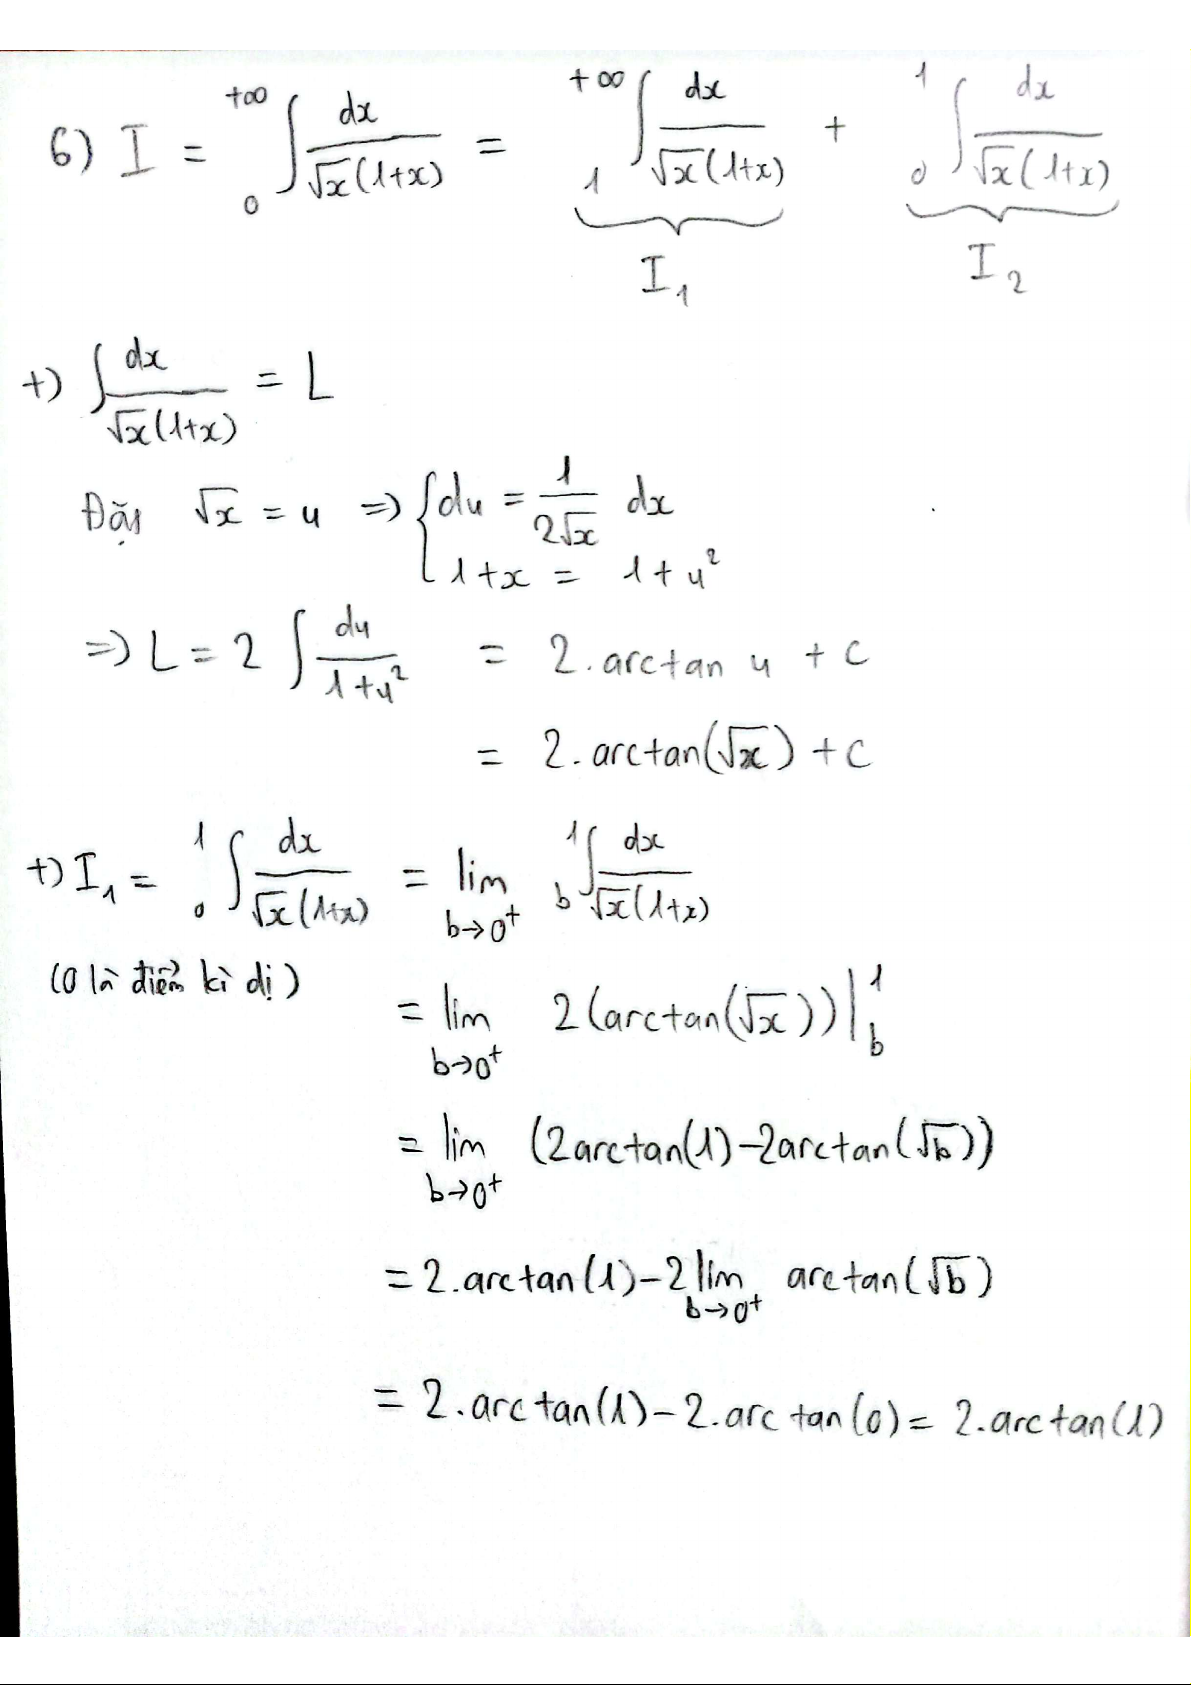 6) I = ₀^{+∞}∫ dx/(√x(1+x)) = ₁^{+∞}∫ dx/(√x(1+x)) + ₀^{1}∫ dx/(√x(1+x))
I₁ I₂
+) ∫ dx/(√x(1+x)) = L
Đặt √x = u => { du = 1/(2√x) dx
1+x = 1+u²
=> L = 2 ∫ du/(1+u²) = 2.arctan u + c
= 2.arctan(√x) + c
+) I₁ = ₀^{1}∫ dx/(√x(1+x)) = lim_{b→0⁺} _b^{1}∫ dx/(√x(1+x))
(0 là điểm kì dị)
= lim_{b→0⁺} 2(arctan(√x))|_b^1
= lim_{b→0⁺} (2arctan(1)-2arctan(√b))
= 2.arctan(1)-2lim_{b→0⁺} arctan(√b)
= 2.arctan(1)-2.arctan(0) = 2.arctan(1)